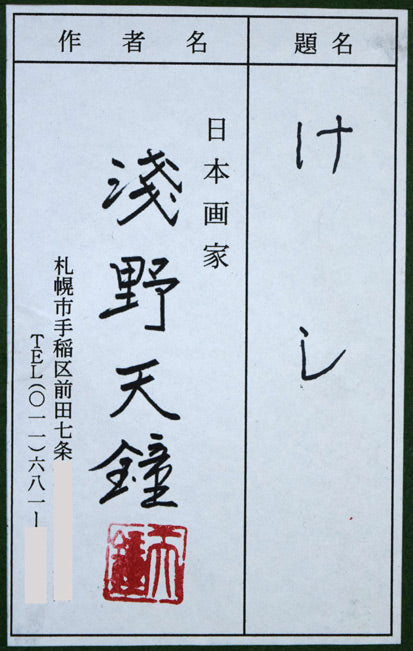 題名
けし
作者名
日本画家
淺野天鐘
天鐘
札幌市手稲区前田七条
TEL(〇一一)六八一ー